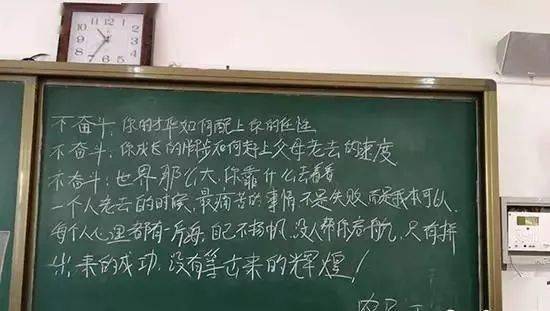 不奋斗,你的才华如何配上你的任性
不奋斗:你成长的脚步如何赶上父母老去的速度
不奋斗:世界那么大,你靠什么去看看
一个人老去的时候,最痛苦的事情不是失败,而是我本可以、
每个人心里都有一片海,自己不扬帆,没人帮你启航,只有拼
出来的成功,没有等出来的辉煌!